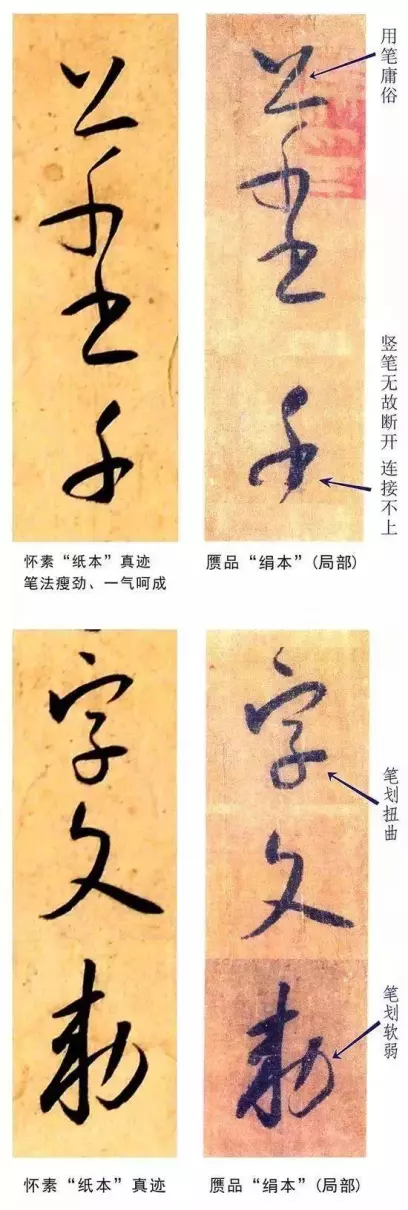 千
千
用笔庸俗
竖笔无故断开 连接不上
怀素“纸本”真迹
笔法瘦劲、一气呵成
赝品“绢本”(局部)
字文勅
字文勅
笔划扭曲
笔划软弱
怀素“纸本”真迹
赝品“绢本”(局部)